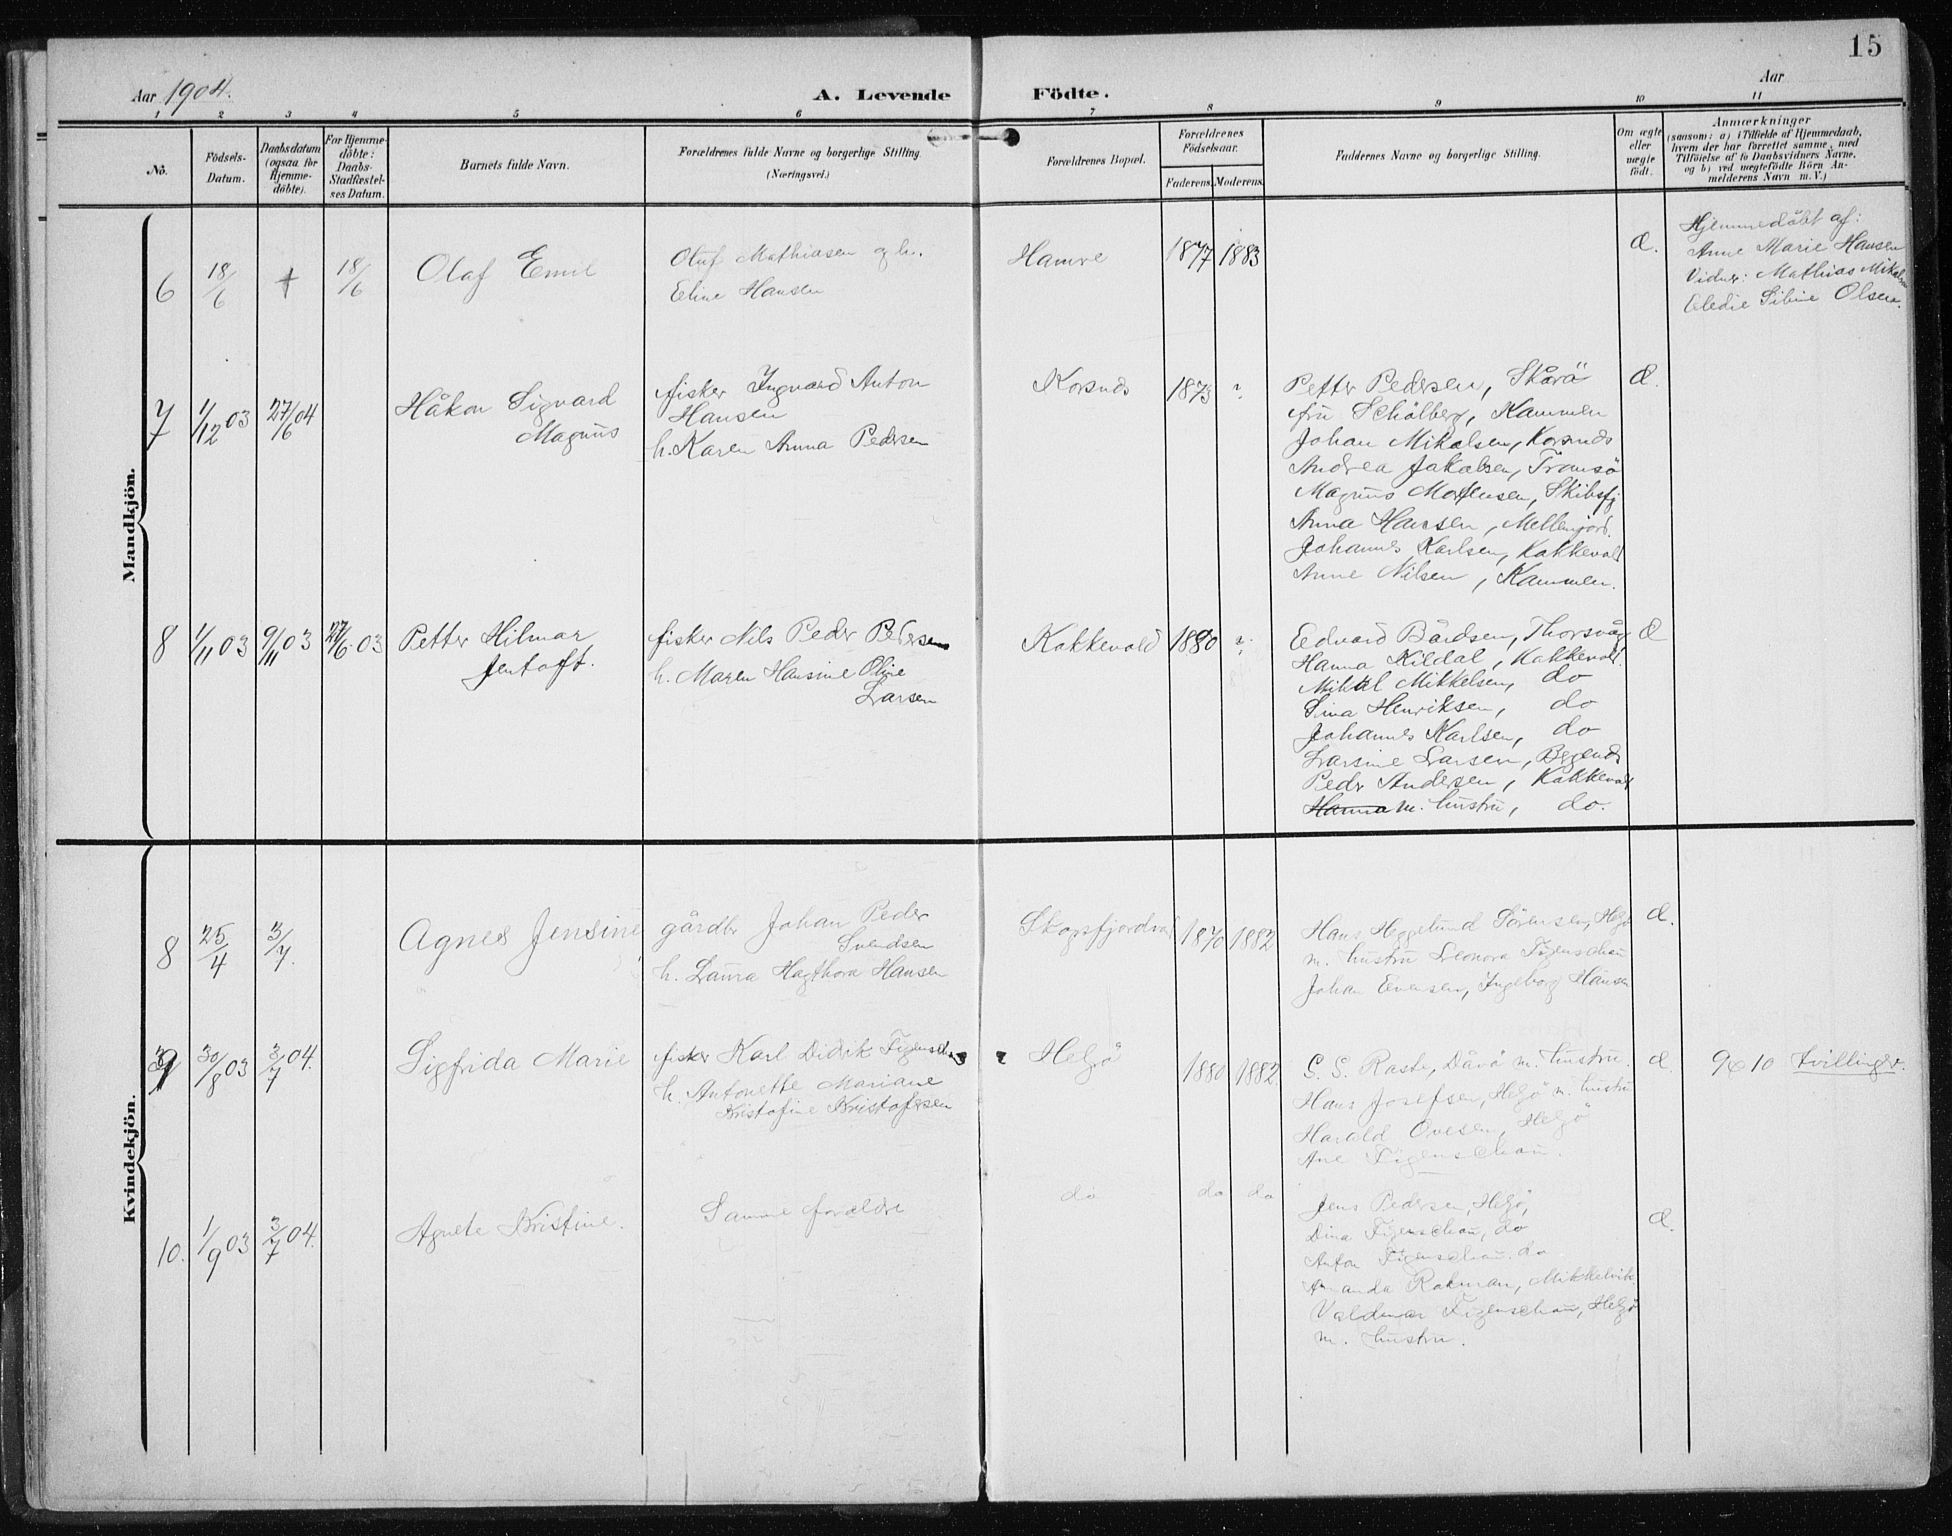 15
Aar 1904.
A. Levende Födte.
Aar
1 2 3 4 5 6 7 8 9 10 11
No.
Födsels-Datum.
Daabsdatum (ogsaa for Hjemme-döbte).
For Hjemme-döbte: Daabs-Stadfæstelses Datum.
Barnets fulde Navn.
Forældrenes fulde Navne og borgerlige Stilling.
(Næringsvei.)
Forældrenes Bopæl.
Forældrenes Födselsaar.
Faderens. Moderens.
Faddernes Navne og borgerlige Stilling.
Om ægte eller uægte födt.
Anmærkninger
(saasom: a) i Tilfælde af Hjemmedaab, hvem der har forrettet samme, med Tilföielse af to Daabsvidners Navne, og b) ved uægtefödte Börn Anmelderens Navn m. V.)
Mandkjön.
6 18/6 † 18/6 Olaf Emil
Oluf Mathiasen og h.
Eline Hansen
Hamre 1877 1883
Æ.
Hjemmedöbt af:
Anne Marie Hansen
Vidner: Mathias Mikalsen
Eledie Sibine Olsen.
7 1/12 03 27/6 04 Håkon Sigvard
Magnus
fisker Ingvard Anton
Hansen
h. Karen Anna Pedersen
Korsnæs 1873 ?
Petter Pedersen, Skårö
fru Schölberg, Kammen
Johan Mikalsen, Korsnæs
Andrea Jakobsen, Tromsö
Magnus Mortensen, Skibsfj
Anna Hansen, Mellemjord.
Johannes Karlsen, Kakkevold
Anne Nilsen, Kammen.
Æ.
8 1/11 03 9/11 03 27/6 03 Petter Hilmar
Jentoft.
fisker Nils Peder Pedersen
h. Maren Hansine Oline
Larsen
Kakkevold 1880 ?
Edvard Bårdsen, Thorsvåg
Hanna Kildal, Kakkevold.
Mikal Mikkelsen, do
Sina Henriksen, do
Johannes Karlsen, do
Larsine Larsen,
Peder Andersen, Kakkevold
Hanna m. hustru, do.
Æ
Kvindekjön.
8 25/4 3/7. Agnes Jensine
gårdbr Johan Peder
Svendsen
h. Laura Hagthora Hansen
1870 1882
Hans Heggelund Sörensen, Helgö
m. hustru Leonora Figenschau
Johan Evensen, Ingeborg Hansen
Æ.
9 30/8 03 3/7 04. Sigfrida Marie
fisker Karl Didrik Figenschau
h. Antonette Mariane
Kristofine Kristofersen
Helgö 1880 1882
Dåvö m. hustru.
Hans Josefsen, Helgö m. hustru
Harald Ovesen, Helgö
Ane Figenschau.
Æ.
9 & 10 tvillinger.
10. 1/9 03 3/7 04. Agnete Kristine.
Samme forældre
do do do
Jens Pedersen, Helgö,
Dina Figenschau, do
Anton Figenschau. do
Amanda Rakman, Mikkelvik
Valdemar Figenschau, Helgö
m. hustru.
Æ.